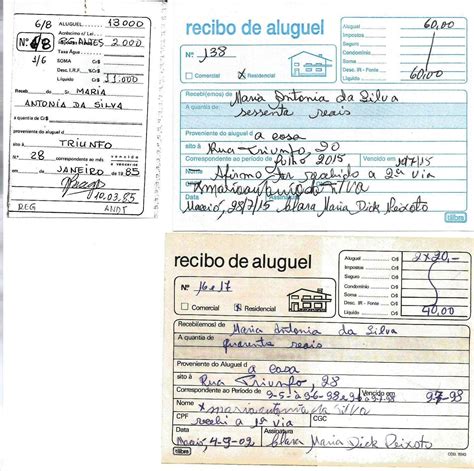 6/8
ALUGUEL.
13000
Acréscimo c/ Lei
Nº 6/8
2.000
Taxa Água
SOMA Cr$
Desc. I.R.F. Cr$
Líquido Cr$ 11.000
Recebi do sr. MARIA
ANTONIA DA SILVA
a quantia de Cr$
Proveniente do aluguel da casa
TRIUNFO
Nº 28 correspondente ao mês
JANEIRO DE 1985
10.03.85
REG
recibo de aluguel
Nº 138
Comercial x Residencial
Aluguel Cr$ 60,00
Impostos Cr$
Seguro Cr$
Condomínio Cr$
Soma Cr$
Desc. IR - Fonte Cr$
Líquido Cr$ 60,00
Recebi(emos) de Maria Antonia da Silva
a quantia de sessenta reais
Proveniente do aluguel d a casa
sito à Rua Triunfo, 20
Correspondente ao Período de Julho 2015 Vencido em
Afirmo ter recebido a 2ª via
Maceió, 28/7/15 Clara Maria Dick Peixoto
tilibra
recibo de aluguel
Nº 16 e 17
Comercial x Residencial
Aluguel Cr$ 2x20,-
Impostos Cr$
Seguro Cr$
Condomínio Cr$
Soma Cr$
Desc. IR - Fonte Cr$
Líquido Cr$ 40,00
Recebi(emos) de Maria Antonia da Silva
a quantia de quarenta reais
Proveniente do Aluguel d a casa
sito à Rua Triunfo, 28
Correspondente ao Período de Vencido em
Nome x maria antonia da silva
CPF CGC
recebi a 1ª via
Maceió, 4-9-02 Clara Maria Dick Peixoto
Data Assinatura
tilibra